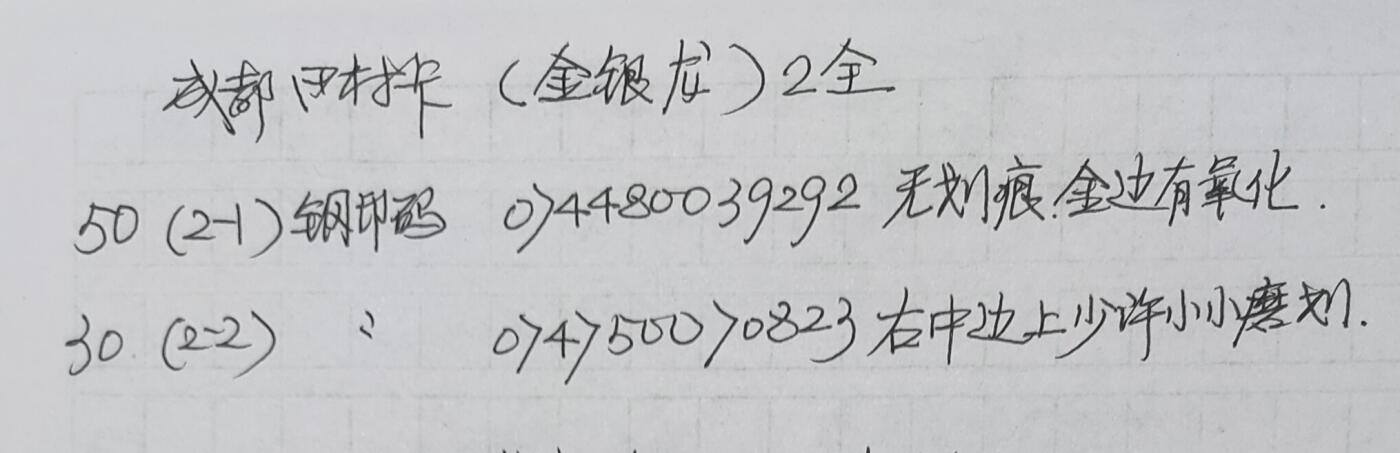 成都田村卡（金银龙）2全
50（2-1）钢印码 074480039292 无划痕.金边有氧化.
30（2-2） 〃 074750070823 右中边上少许小小磨划.